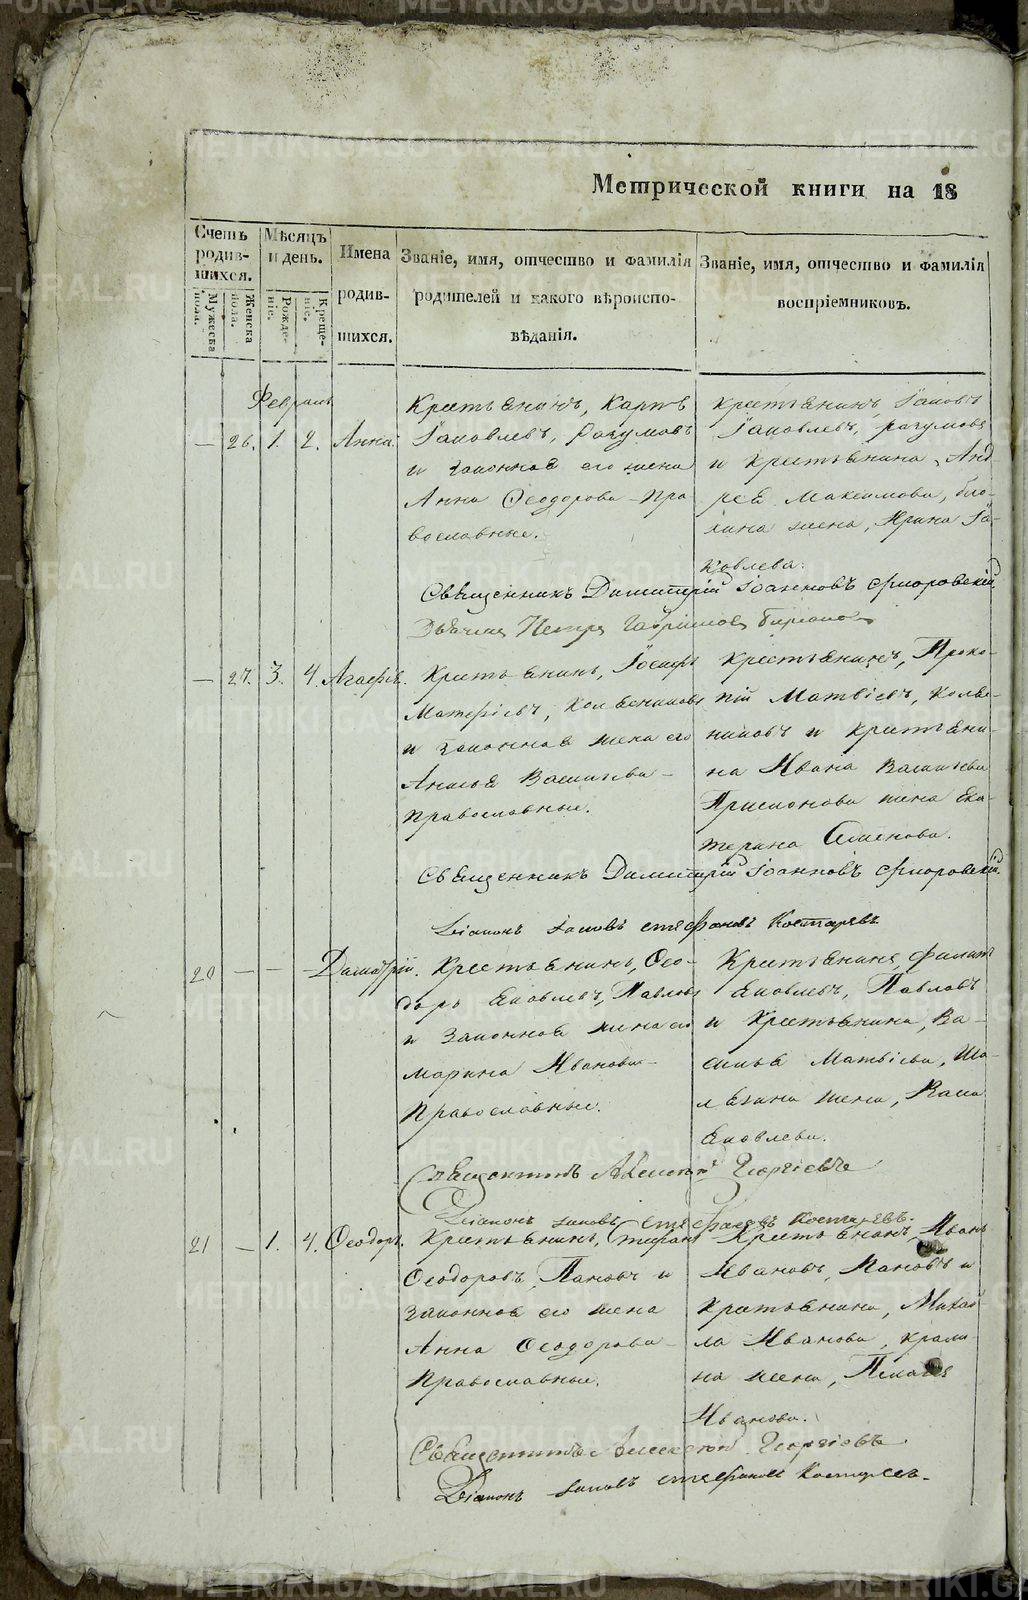 Метрической книги на 18
Счетъ родив-шихся.
Мужеска пола.
Женска пола.
Мѣсяцъ и день.
Рожде-ніе.
Креще-ніе.
Имена родив-шихся.
Званіе, имя, отчество и фамилія
родителей и какого вѣроиспо-
вѣданія.
Званіе, имя, отчество и фамилія
воспріемниковъ.
Февраль
— 26. 1. 2. Анна.
Крестьянинъ, Карпъ
Іаковлевъ,
и законная его жена
Анна Ѳеодорова – Пра
вославные.
Крестьянинъ, Іаковъ
Іаковлевъ,
и Крестьянина, Анд-
рея Максимова,
жена, Ирина Іа-
ковлева.
Священникъ Димитрій Іоанновъ Флоровскій
Дьячекъ Петръ Гавріиловъ
— 27. 3. 4. Агафія.
Крестьянинъ, Іосифъ
Матфіевъ, Колясниковъ
и законная жена его
Анисья Васильева –
Православные.
Крестьянинъ, Проко-
пій Матвіевъ, Коляс-
никовъ и Крестьяни-
на Ивана Васильева
жена Ека-
терина Семенова.
Священникъ Димитрій Іоанновъ Флоровскій
Діаконъ Іаковъ Стефановъ Костаревъ
20 — — — Димитрій.
Крестьянинъ, Ѳео-
доръ Яковлевъ, Павловъ
и законная жена его
Марина Иванова –
Православные.
Крестьянинъ, Филипъ
Яковлевъ, Павловъ
и Крестьянина, Ва-
силья Матвіева,
жена,
Яковлева.
Священникъ Алексѣй Георгіевъ
Діаконъ Іаковъ Стефановъ Костаревъ.
21 — 1. 4. Ѳеодоръ.
Крестьянинъ, Стефанъ
Ѳеодоровъ, Пановъ и
законная его жена
Анна Ѳеодорова –
Православные.
Крестьянинъ, Иванъ
Ивановъ, Пановъ и
Крестьянина, Михаи
ла Иванова,
на жена,
Иванова.
Священникъ Алексѣй Георгіевъ
Діаконъ Іаковъ Стефановъ Костаревъ.
METRIKI.GASO-URAL.RU